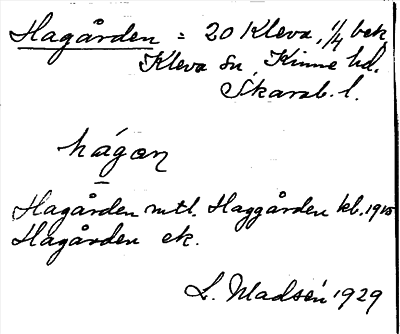 Hagården = 20 Kleva, 1/4 bek.
Kleva sn, Kinne hd.
Skarab. l.
hágæn
Hagården mtl. Haggården kb. 1915
Hagården ek.
L. Madsén 1929